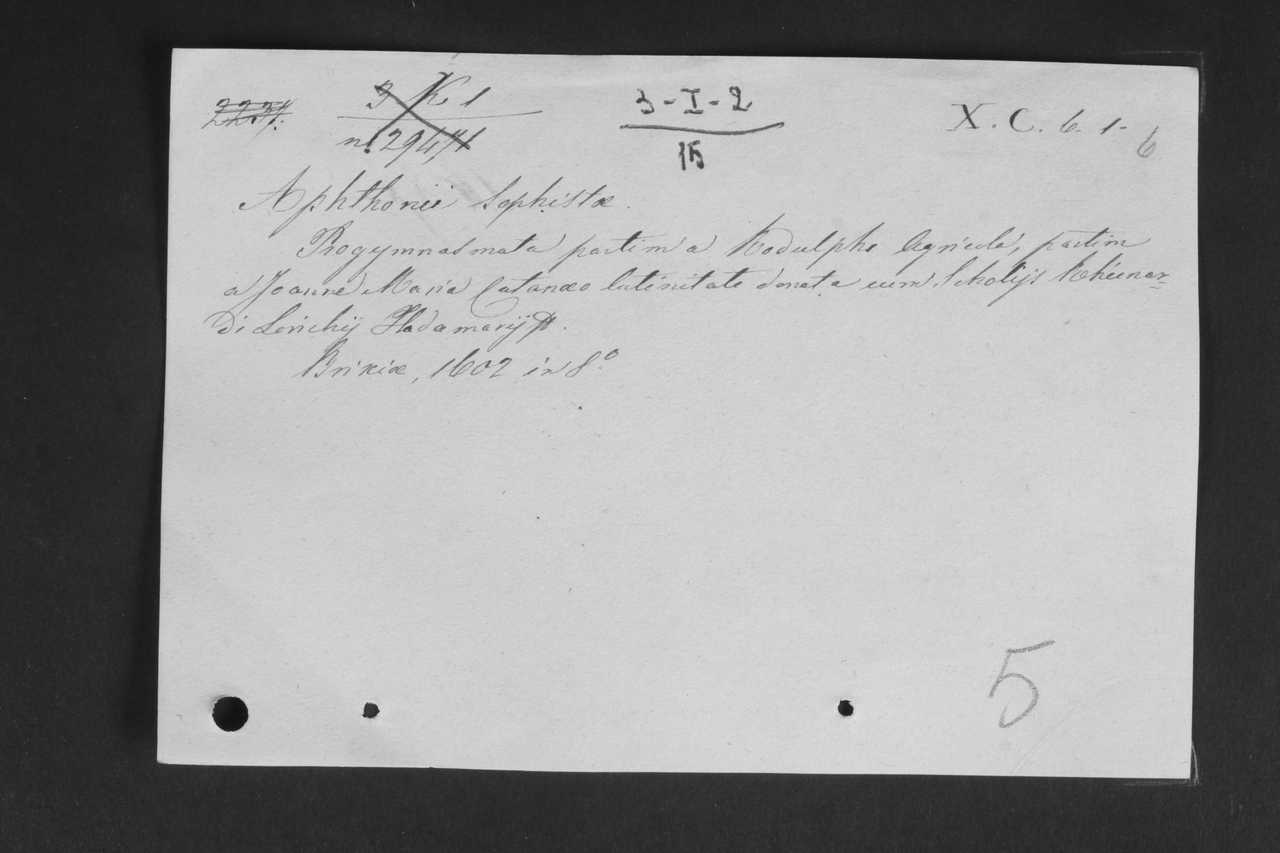 2237. 3 K 1 3-I-2 X. C. 6. 1-6
n. 294,4 15
Aphthonii Sophistæ.
Progymnasmata partim a Rodulpho Agricola, partim
a Joanne Maria Catanæo latinitate donata cum Scholijs Rheinar-
di Lorichij Hadamarij
Brixiæ, 1602 in 8º
5